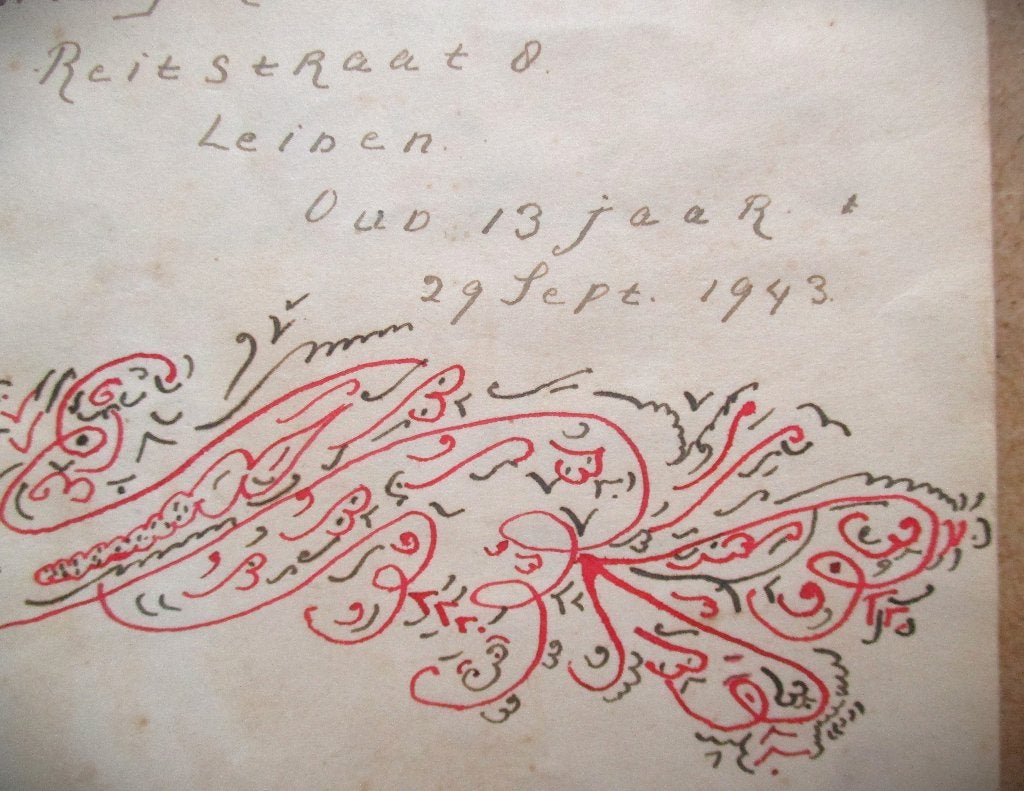 Reitstraat 8.
Leiden.
Oud 13 jaar.
29 Sept. 1943.